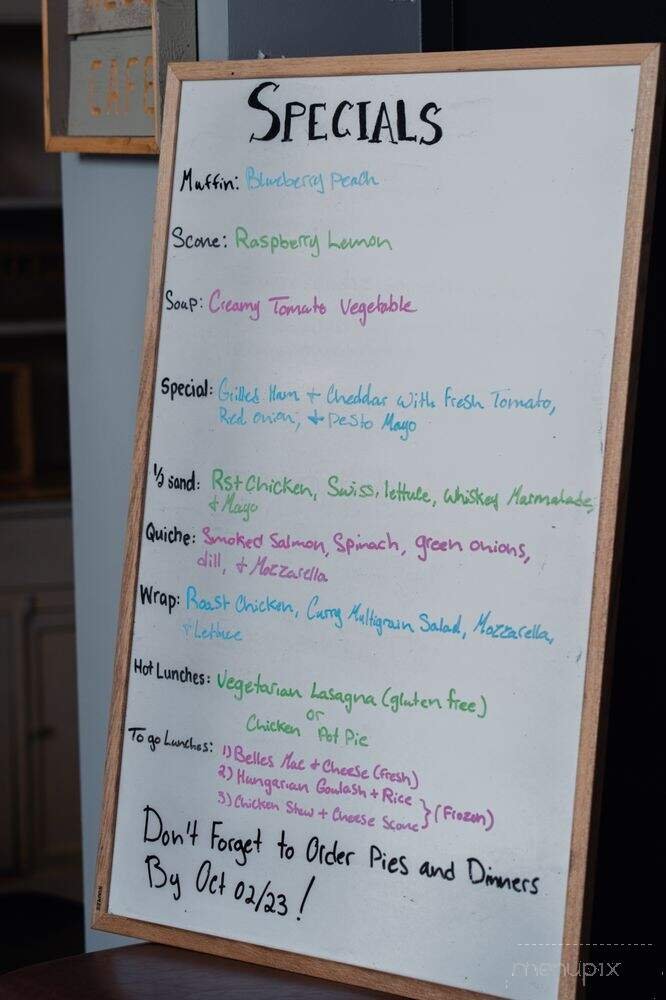 CAFE
SPECIALS
Muffin: Blueberry Peach
Scone: Raspberry Lemon
Soup: Creamy Tomato Vegetable
Special: Grilled Ham + Cheddar with Fresh Tomato,
Red onion, + Pesto Mayo
1/2 sand: Rst Chicken, Swiss, lettuce, Whiskey Marmalade,
+ Mayo
Quiche: Smoked Salmon, Spinach, green onions,
dill, + Mozzarella
Wrap: Roast Chicken, Curry Multigrain Salad, Mozzarella,
+ Lettuce
Hot Lunches: Vegetarian Lasagna (gluten free)
or
Chicken Pot Pie
To go Lunches: 1) Belles Mac + Cheese (fresh)
2) Hungarian Goulash + Rice
3) Chicken Stew + Cheese Scone } (Frozen)
Don't Forget to Order Pies and Dinners
By Oct 02/23!
menupix